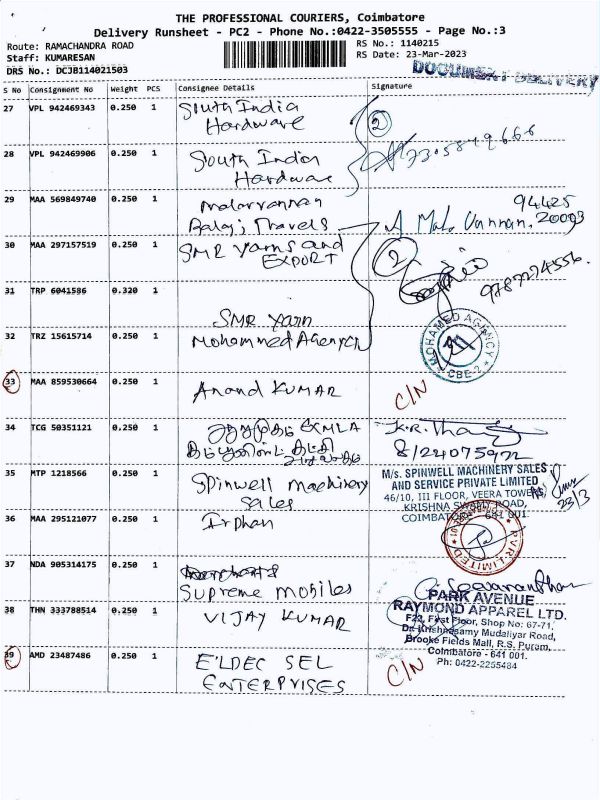 THE PROFESSIONAL COURIERS, Coimbatore
Delivery Runsheet - PC2 - Phone No.:0422-3505555 - Page No.:3
Route: RAMACHANDRA ROAD
RS No.: 1140215
Staff: KUMARESAN
RS Date: 23-Mar-2023
DRS No.: DCJB114021503
DOCUMENT DELIVERY
S No Consignment No Weight PCS Consignee Details Signature
27 VPL 942469343 0.250 1 South India
Hardware
2
28 VPL 942469906 0.250 1 South India
Hardware
29 MAA 569849740 0.250 1 Malarvannan
Balaji Travels
94425
20003
30 MAA 297157519 0.250 1 SMR Yarns and
EXPORT
2
9787274556.
31 TRP 6041586 0.320 1
SMR Yarn
32 TRZ 15615714 0.250 1 Mohammed Agency
MOHAMED AGENCY
CBE-2
33 MAA 859530664 0.250 1 Anand KUMAR
C/N
34 TCG 50351121 0.250 1
35 MTP 1218566 0.250 1 Spinwell machinery
Sales
M/s. SPINWELL MACHINERY SALES
AND SERVICE PRIVATE LIMITED
46/10, III FLOOR, VEERA TOWERS,
KRISHNA SWAMY ROAD,
COIMBATORE - 641 001.
23/3
36 MAA 295121077 0.250 1 Irphan
37 NDA 905314175 0.250 1
Supreme mobiles
38 THN 333788514 0.250 1 VIJAY KUMAR
PARK AVENUE
RAYMOND APPAREL LTD.
F22, First Floor, Shop No: 67-71,
Dr. Krishnasamy Mudaliyar Road,
Brooke Fields Mall, R.S. Puram,
Coimbatore - 641 001.
Ph: 0422-2255484
39 AMD 23487486 0.250 1 E'LDEC SEL
ENTERPRISES
C/N